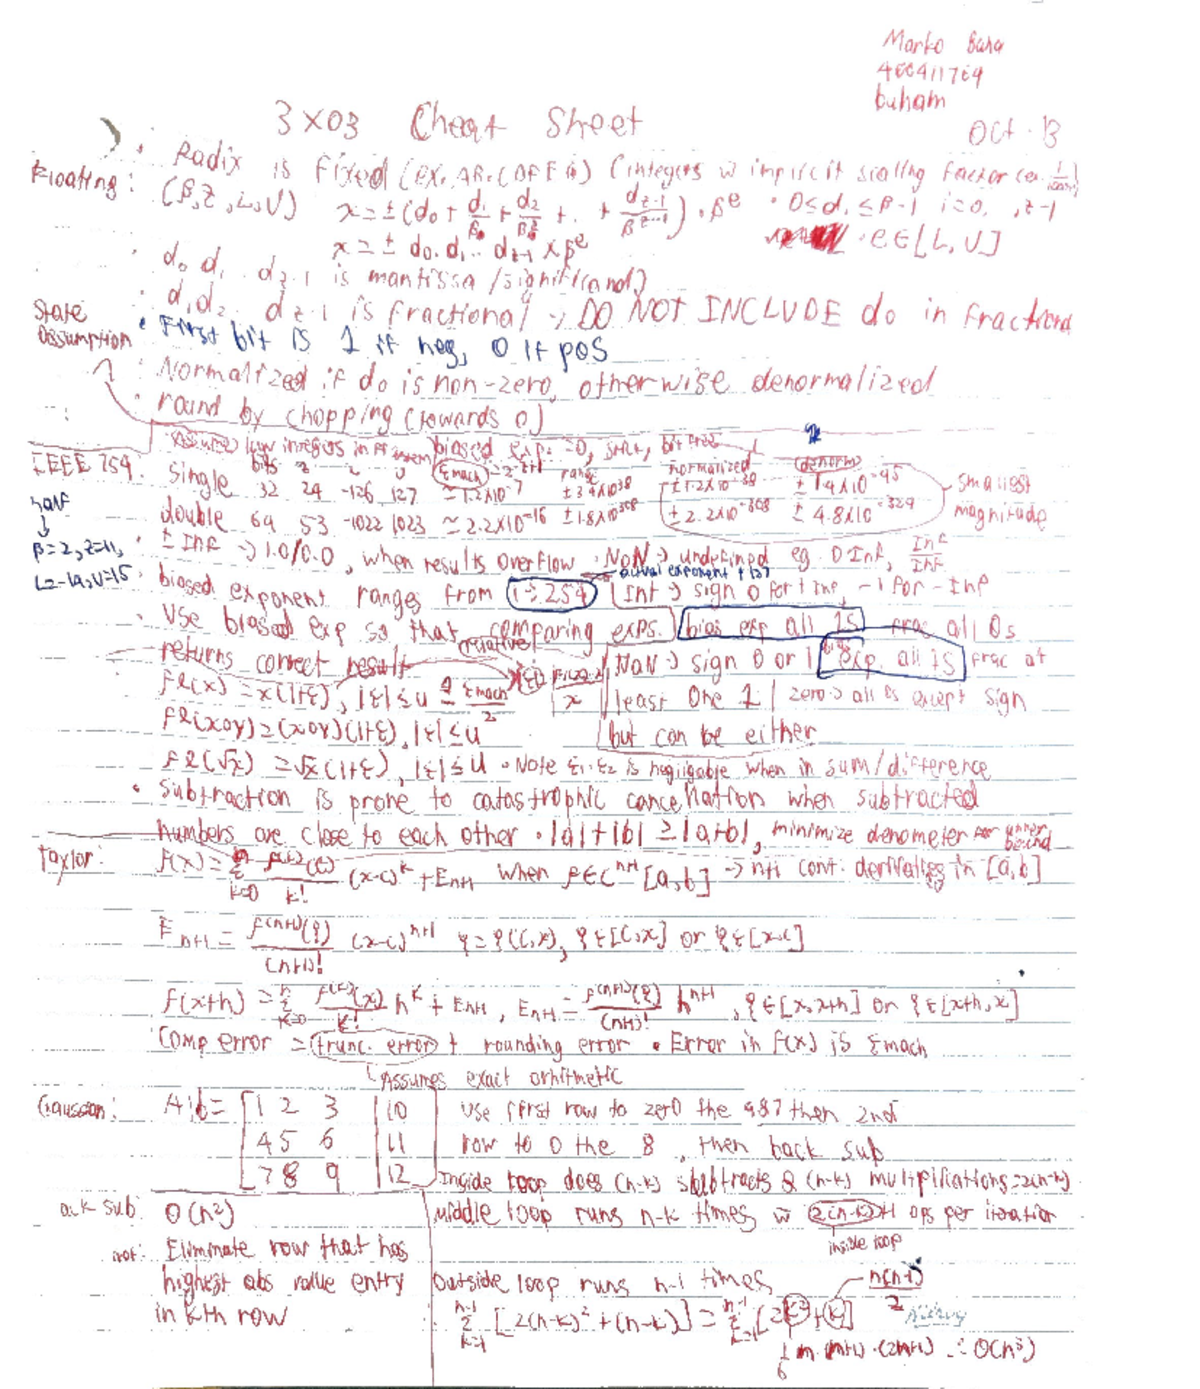 Marko Bara
buham
3X03 Cheat Sheet
Oct. 13
• Radix is fixed (integers w implicit scaling factor
Floating: (β, z, L, U) x = ± (d₀ + d₁/β + d₂/β² + . . + d_{z-1}/β^{z-1}) · β^e • 0 ≤ dᵢ ≤ β-1 i=0, , z-1
x = ± d₀. d₁ .. d_{z-1} × β^e • e ∈ [L, U]
d₀ d₁ . d_{z-1} is mantissa /significand)
• d₁d₂ d_{z-1} is fractional → DO NOT INCLUDE d₀ in fractional
State assumption
• First bit is 1 if neg, 0 if pos
• Normalized if d₀ is non-zero, otherwise denormalized
• round by chopping (towards 0)
IEEE 754: bits z L U Emach range normalized (denorm)
Single 32 24 -126 127 ± 3.4x10^38 ± 1.2x10^-38 ± 1.4x10^-45 smallest
double 64 53 -1022 1023 ≈ 2.2x10^-16 ± 1.8x10^308 ± 2.2x10^-308 ± 4.8x10^-324 magnitude
half ↓ β=2, z=11,
• ± Inf → 1.0/0.0, when results overflow • NaN → undefined eg. 0 Inf, Inf/Inf
actual exponent + 127
• biased exponent ranges from 1→254 | Inf → sign 0 for + Inf, -1 for - Inf
• Use biased exp so that comparing exps. bias exp all 1s frac all 0s
returns correct result (relative) NaN → sign 0 or 1 bias exp. all 1s frac at
fl(x) = x(1+ε), |ε| ≤ u = Emach/2 least one 1 | zero → all 0s except sign
fl(x∘y) = (x∘y)(1+ε), |ε| ≤ u but can be either
fl(√x) = √x(1+ε), |ε| ≤ u • Note ε₁·ε₂ is negligable when in sum/difference
• Subtraction is prone to catastrophic cancellation when subtracted
numbers are close to each other • |a|+|b| ≥ |a+b|, minimize denometer for upper bound
Taylor: f(x) = Σ_{k=0}^{n} f^{(k)}(c)/k! (x-c)^k + E_{n+1} when f∈C^{n+1}[a,b] → n+1 cont. derivatives in [a,b]
E_{n+1} = f^{(n+1)}(ξ)/(n+1)! (x-c)^{n+1} ξ = ξ(c,x), ξ∈[c,x] or ξ∈[x,c]
f(x+h) = Σ_{k=0}^{n} f^{(k)}(x)/k! h^k + E_{n+1}, E_{n+1} = f^{(n+1)}(ξ)/(n+1)! h^{n+1}, ξ∈[x,x+h] or ξ∈[x+h,x]
Comp error = (trunc. error) + rounding error • Error in f(x) is Emach
Assumes exact arhitmetic
Gaussian: A|b = [1 2 3 | 10 Use first row to zero the 4&7 then 2nd
4 5 6 | 11 row to 0 the 8, then back sub
7 8 9 | 12] Inside loop does (n-k) subtracts & (n-k) multiplications = 2(n-k)
ack sub: O(n²) Middle loop runs n-k times w 2(n-k)+1 ops per iteration
inside loop
Eliminate row that has
highest abs value entry Outside loop runs n-1 times n(n-1)/2
in kth row Σ_{k=1}^{n-1} [2(n-k)² + (n-k)] = Σ_{k=1}^{n-1} [2k² + k]
1/6 m·(m+1)·(2m+1) ∴ O(n³)